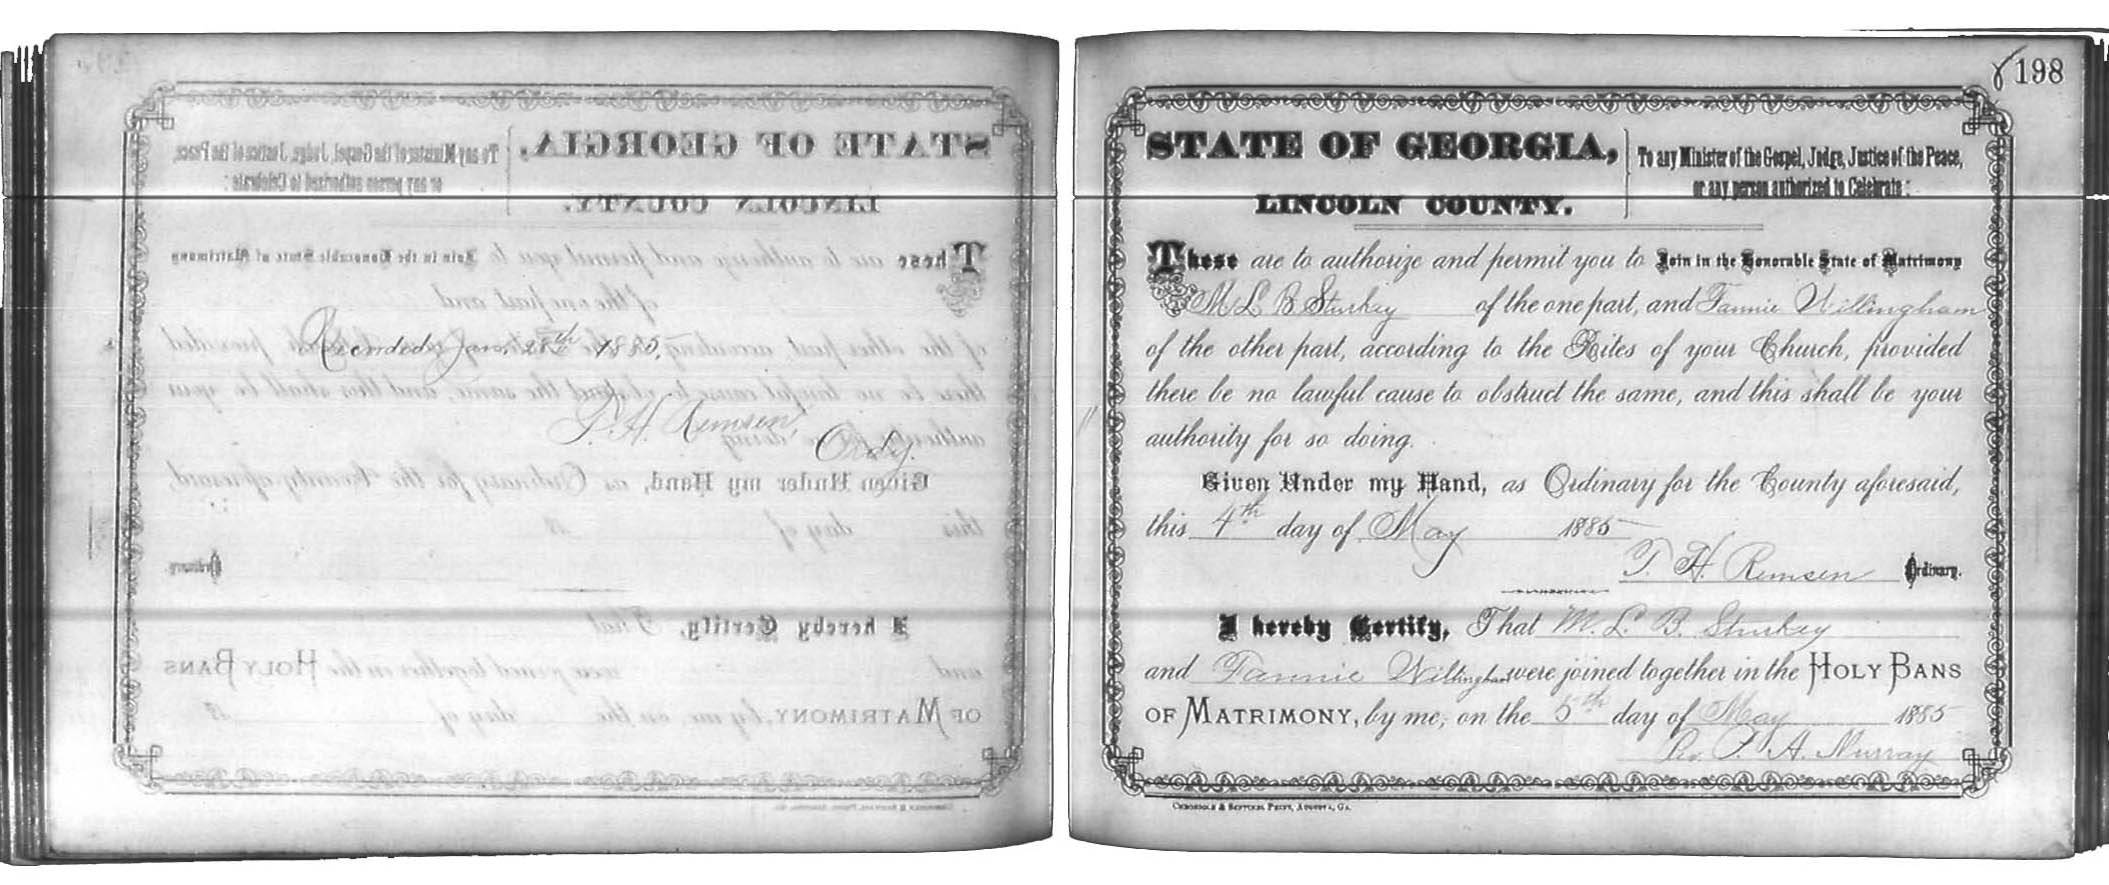 Recorded Jan. 28th 1885.
T. H. Remsen,
Ordy.
198
STATE OF GEORGIA,
LINCOLN COUNTY.
To any Minister of the Gospel, Judge, Justice of the Peace,
or any person authorized to Celebrate:
These are to authorize and permit you to Join in the Honorable State of Matrimony
M L B Sturkey of the one part, and Fannie Willingham
of the other part, according to the Rites of your Church, provided
there be no lawful cause to obstruct the same, and this shall be your
authority for so doing.
Given Under my Hand, as Ordinary for the County aforesaid,
this 4th day of May 1885
T. H. Remsen Ordinary.
I hereby Certify, That M. L. B. Sturkey
and Fannie Willingham were joined together in the HOLY BANS
OF MATRIMONY, by me, on the 5th day of May 1885
Rev. T. A. Murray
CHRONICLE & SENTINEL PRINT, AUGUSTA, GA.